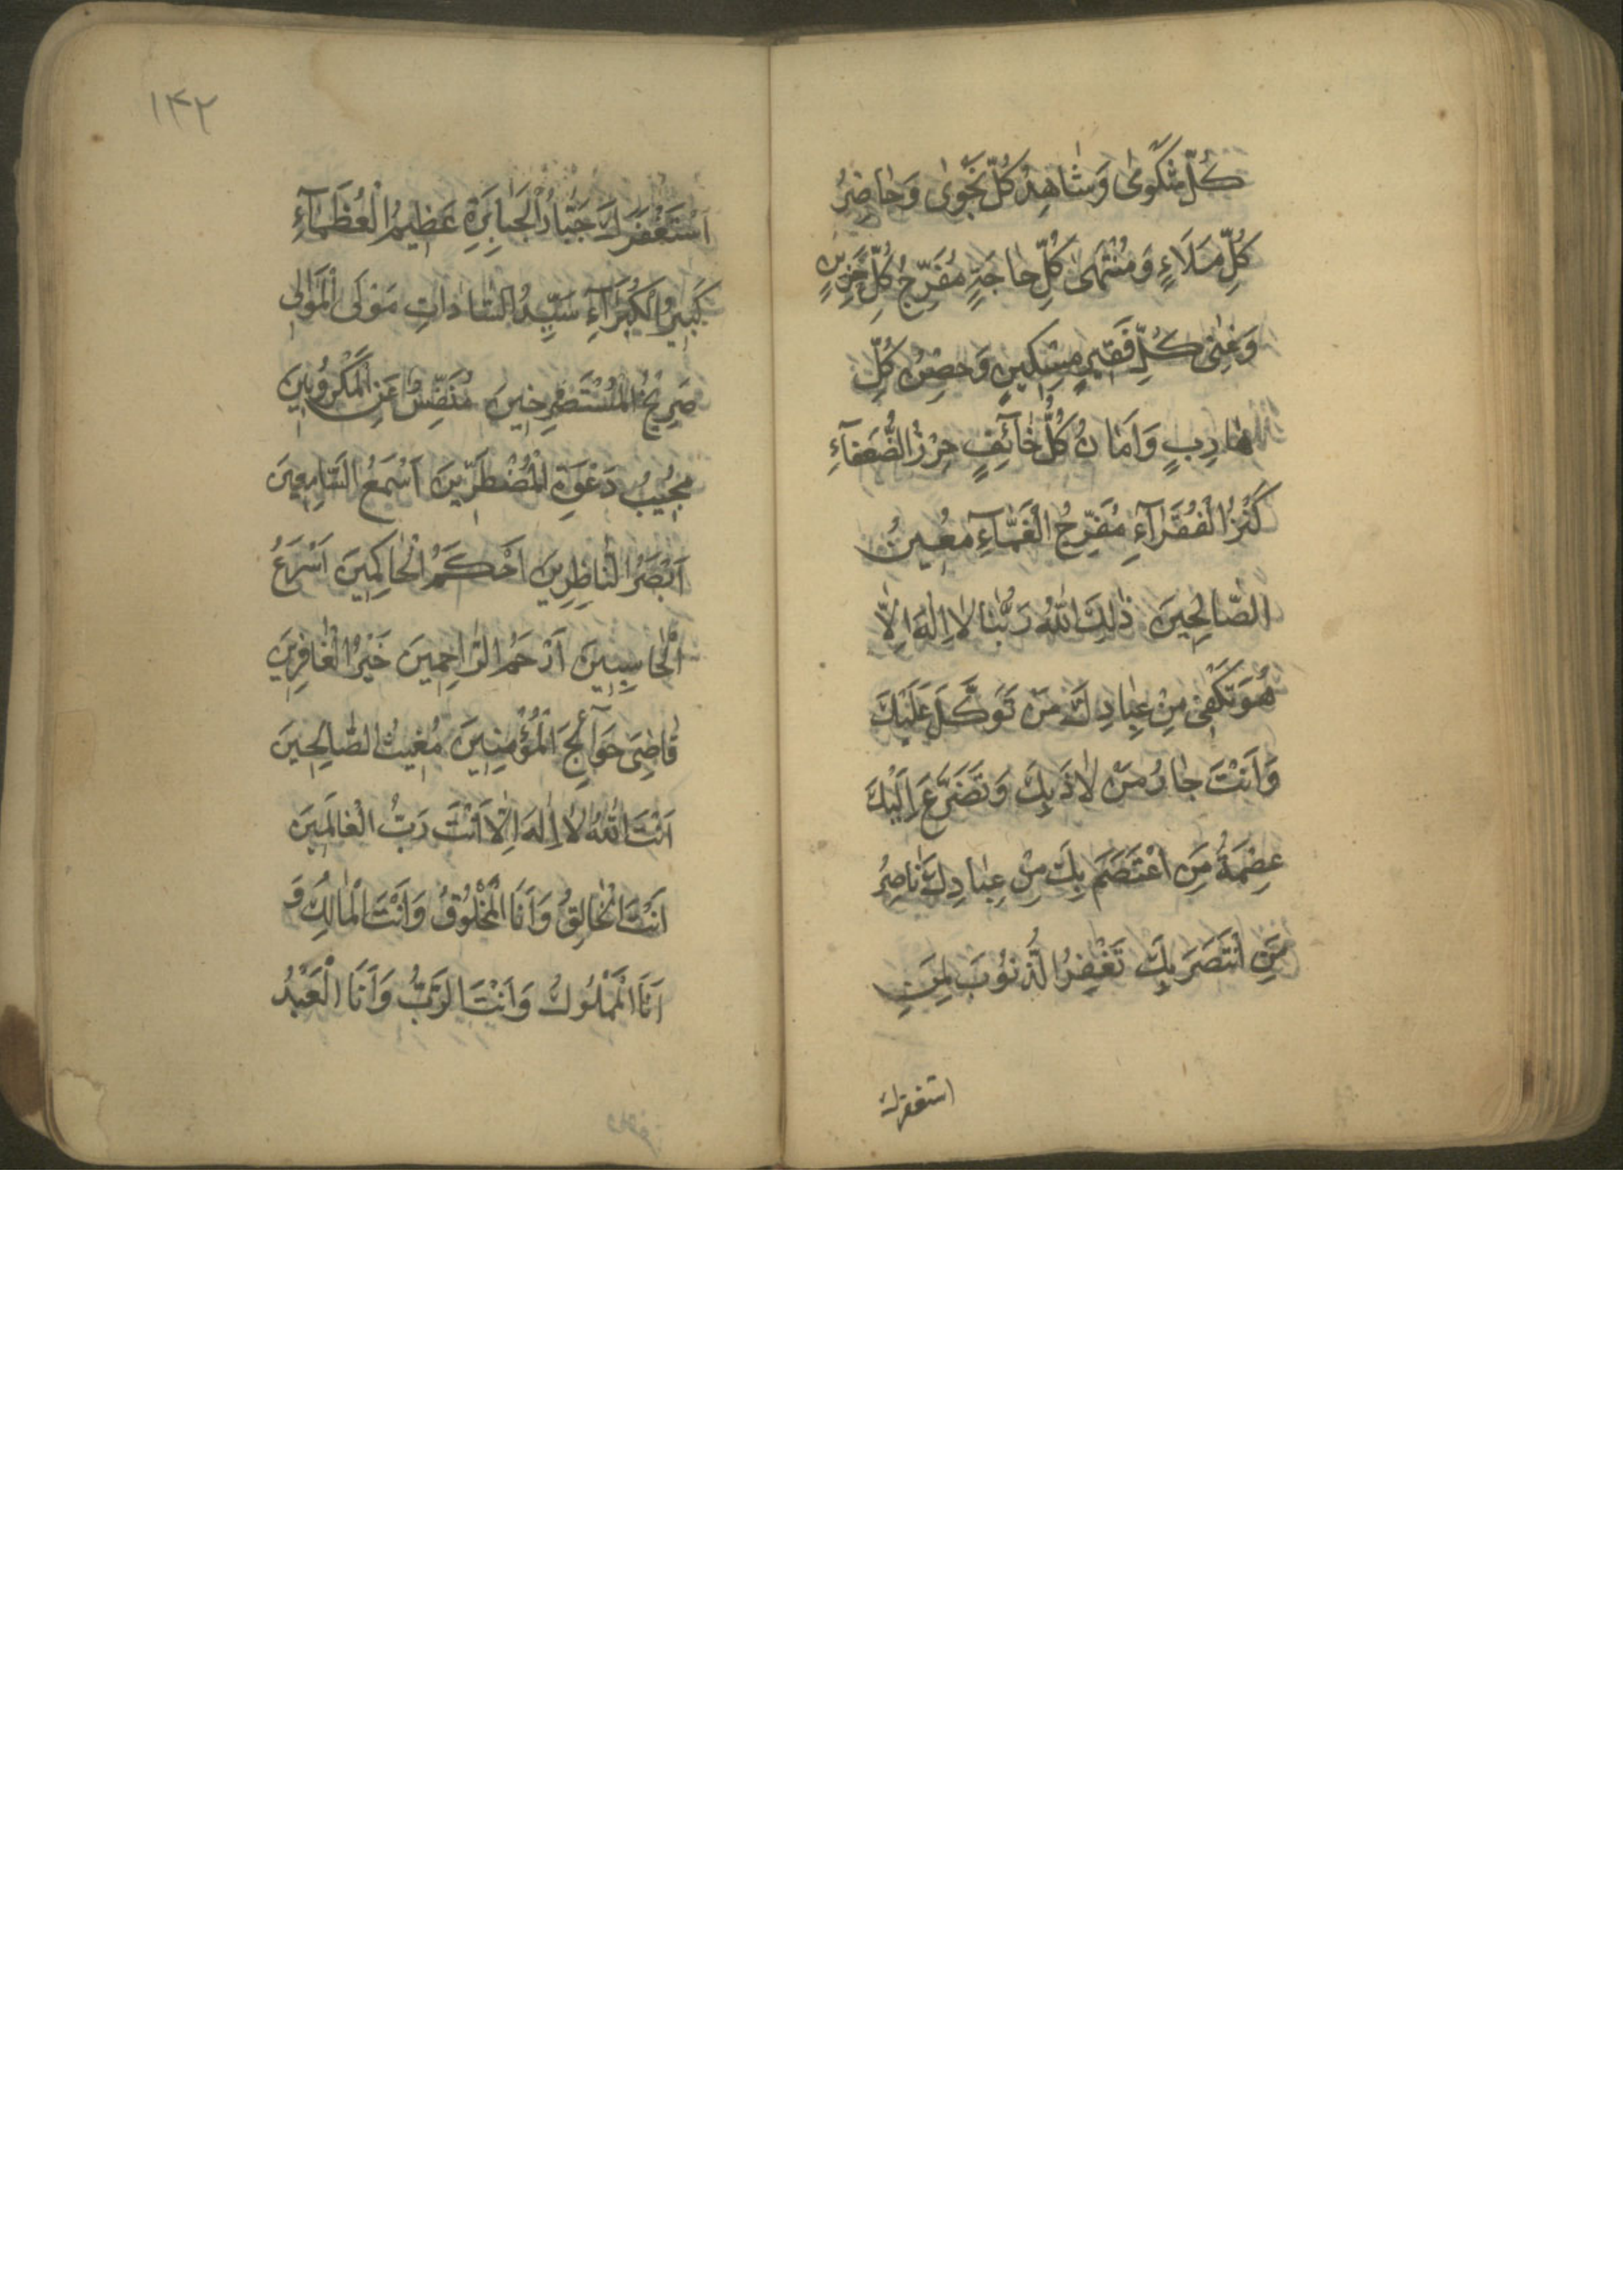 كُلِّ شَكْوٰى وَشٰاهِدُ كُلِّ نَجْوٰى وَحٰاضِرُ
كُلِّ مَلَاءٍ وَمُنْتَهىٰ كُلِّ حٰاجَةٍ مُفَرِّجُ كُلِّ حَزِينٍ
وَغِنىٰ كُلِّ فَقيرٍ مِسْكِينٍ وَحِصْنُ كُلِّ
هٰارِبٍ وَاَمٰانُ كُلِّ خٰآئِفٍ حِرْزُ الضُّعَفٰآءِ
كَنْزُ الْفُقَرٰآءِ مُفَرِّجُ الْغَمّٰآءِ مُعِينُ
الصّٰالِحِينَ ذٰلِكَ اللّٰهُ رَبُّنٰا لٰا اِلٰهَ اِلّٰا
هُوَ تَكْفِى مِنْ عِبٰادِكَ مَنْ تَوَكَّلَ عَلَيْكَ
وَاَنْتَ جٰارُ مَنْ لٰاذَ بِكَ وَتَضَرَّعَ اِلَيْكَ
عِصْمَةُ مَنِ اعْتَصَمَ بِكَ مِنْ عِبٰادِكَ نٰاصِرُ
مَنِ انْتَصَرَ بِكَ تَغْفِرُ الذُّنُوبَ لِمَنِ
استغفرك
١٤٢
اسْتَغْفَرَكَ جَبّٰارُ الْجَبٰابِرَةِ عَظِيمُ الْعُظَمٰآءِ
كَبِيرُ الْكُبَرٰآءِ سَيِّدُ السّٰادٰاتِ مَوْلَى الْمَوٰالِى
صَرِيخُ الْمُسْتَصْرِخِينَ مُنَفِّسٌ عَنِ الْمَكْرُوبِينَ
مُجِيبُ دَعْوَةِ الْمُضْطَرِّينَ اَسْمَعُ السّٰامِعِينَ
اَبْصَرُ النّٰاظِرِينَ اَحْكَمُ الْحٰاكِمِينَ اَسْرَعُ
الْحٰاسِبِينَ اَرْحَمُ الرّٰاحِمِينَ خَيْرُ الْغٰافِرِينَ
قٰاضِى حَوٰآئِجِ الْمُؤْمِنِينَ مُغِيثُ الصّٰالِحِينَ
اَنْتَ اللّٰهُ لٰا اِلٰهَ اِلّٰا اَنْتَ رَبُّ الْعٰالَمِينَ
اَنْتَ الْخٰالِقُ وَاَنَا الْمَخْلُوقُ وَاَنْتَ الْمٰالِكُ وَ
اَنَا الْمَمْلُوكُ وَاَنْتَ الرَّبُّ وَاَنَا الْعَبْدُ